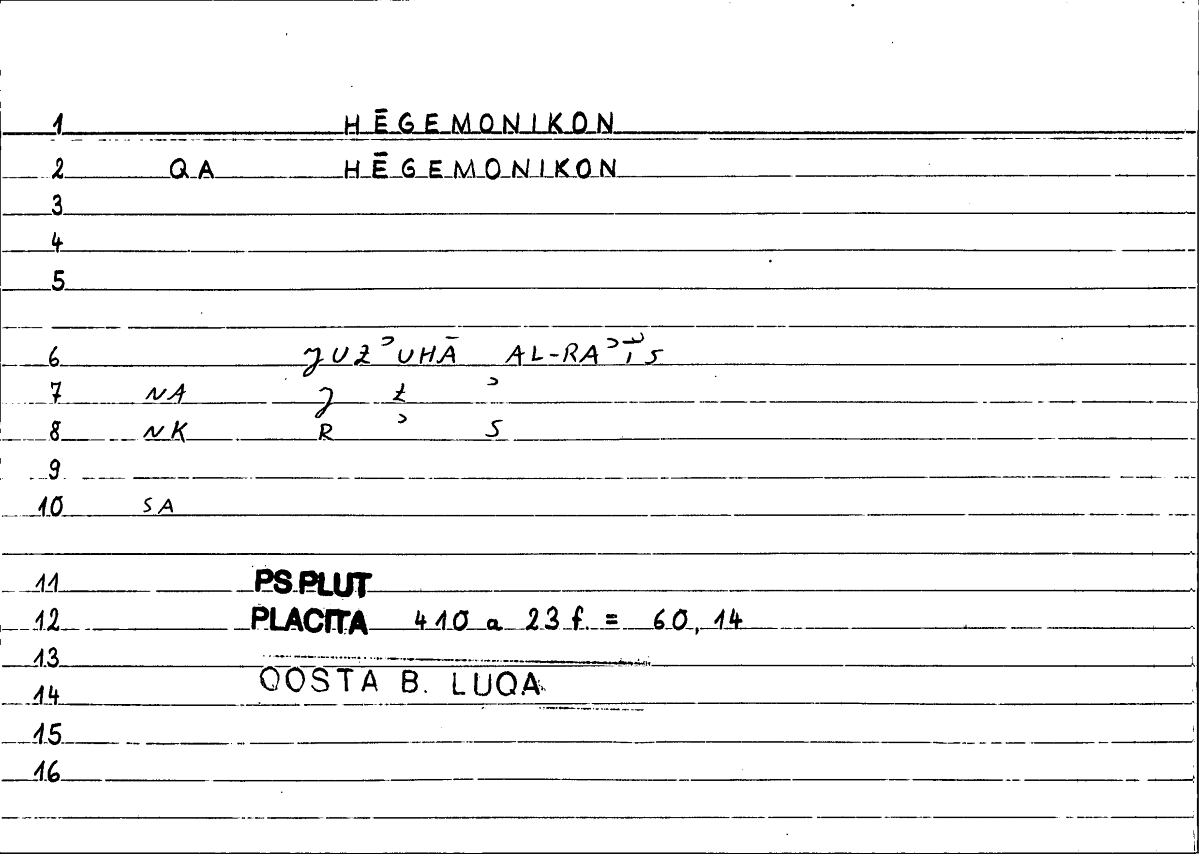 1 HĒGEMONIKON
2 QA HĒGEMONIKON
3
4
5
6 ȷUZʾUHĀ AL-RAʾĪS
7 NA ȷ Z ʾ
8 NK R ʾ S
9
10 SA
11 PS.PLUT
12 PLACITA 410 a 23 f. = 60, 14
13
14 QOSTA B. LUQA
15
16